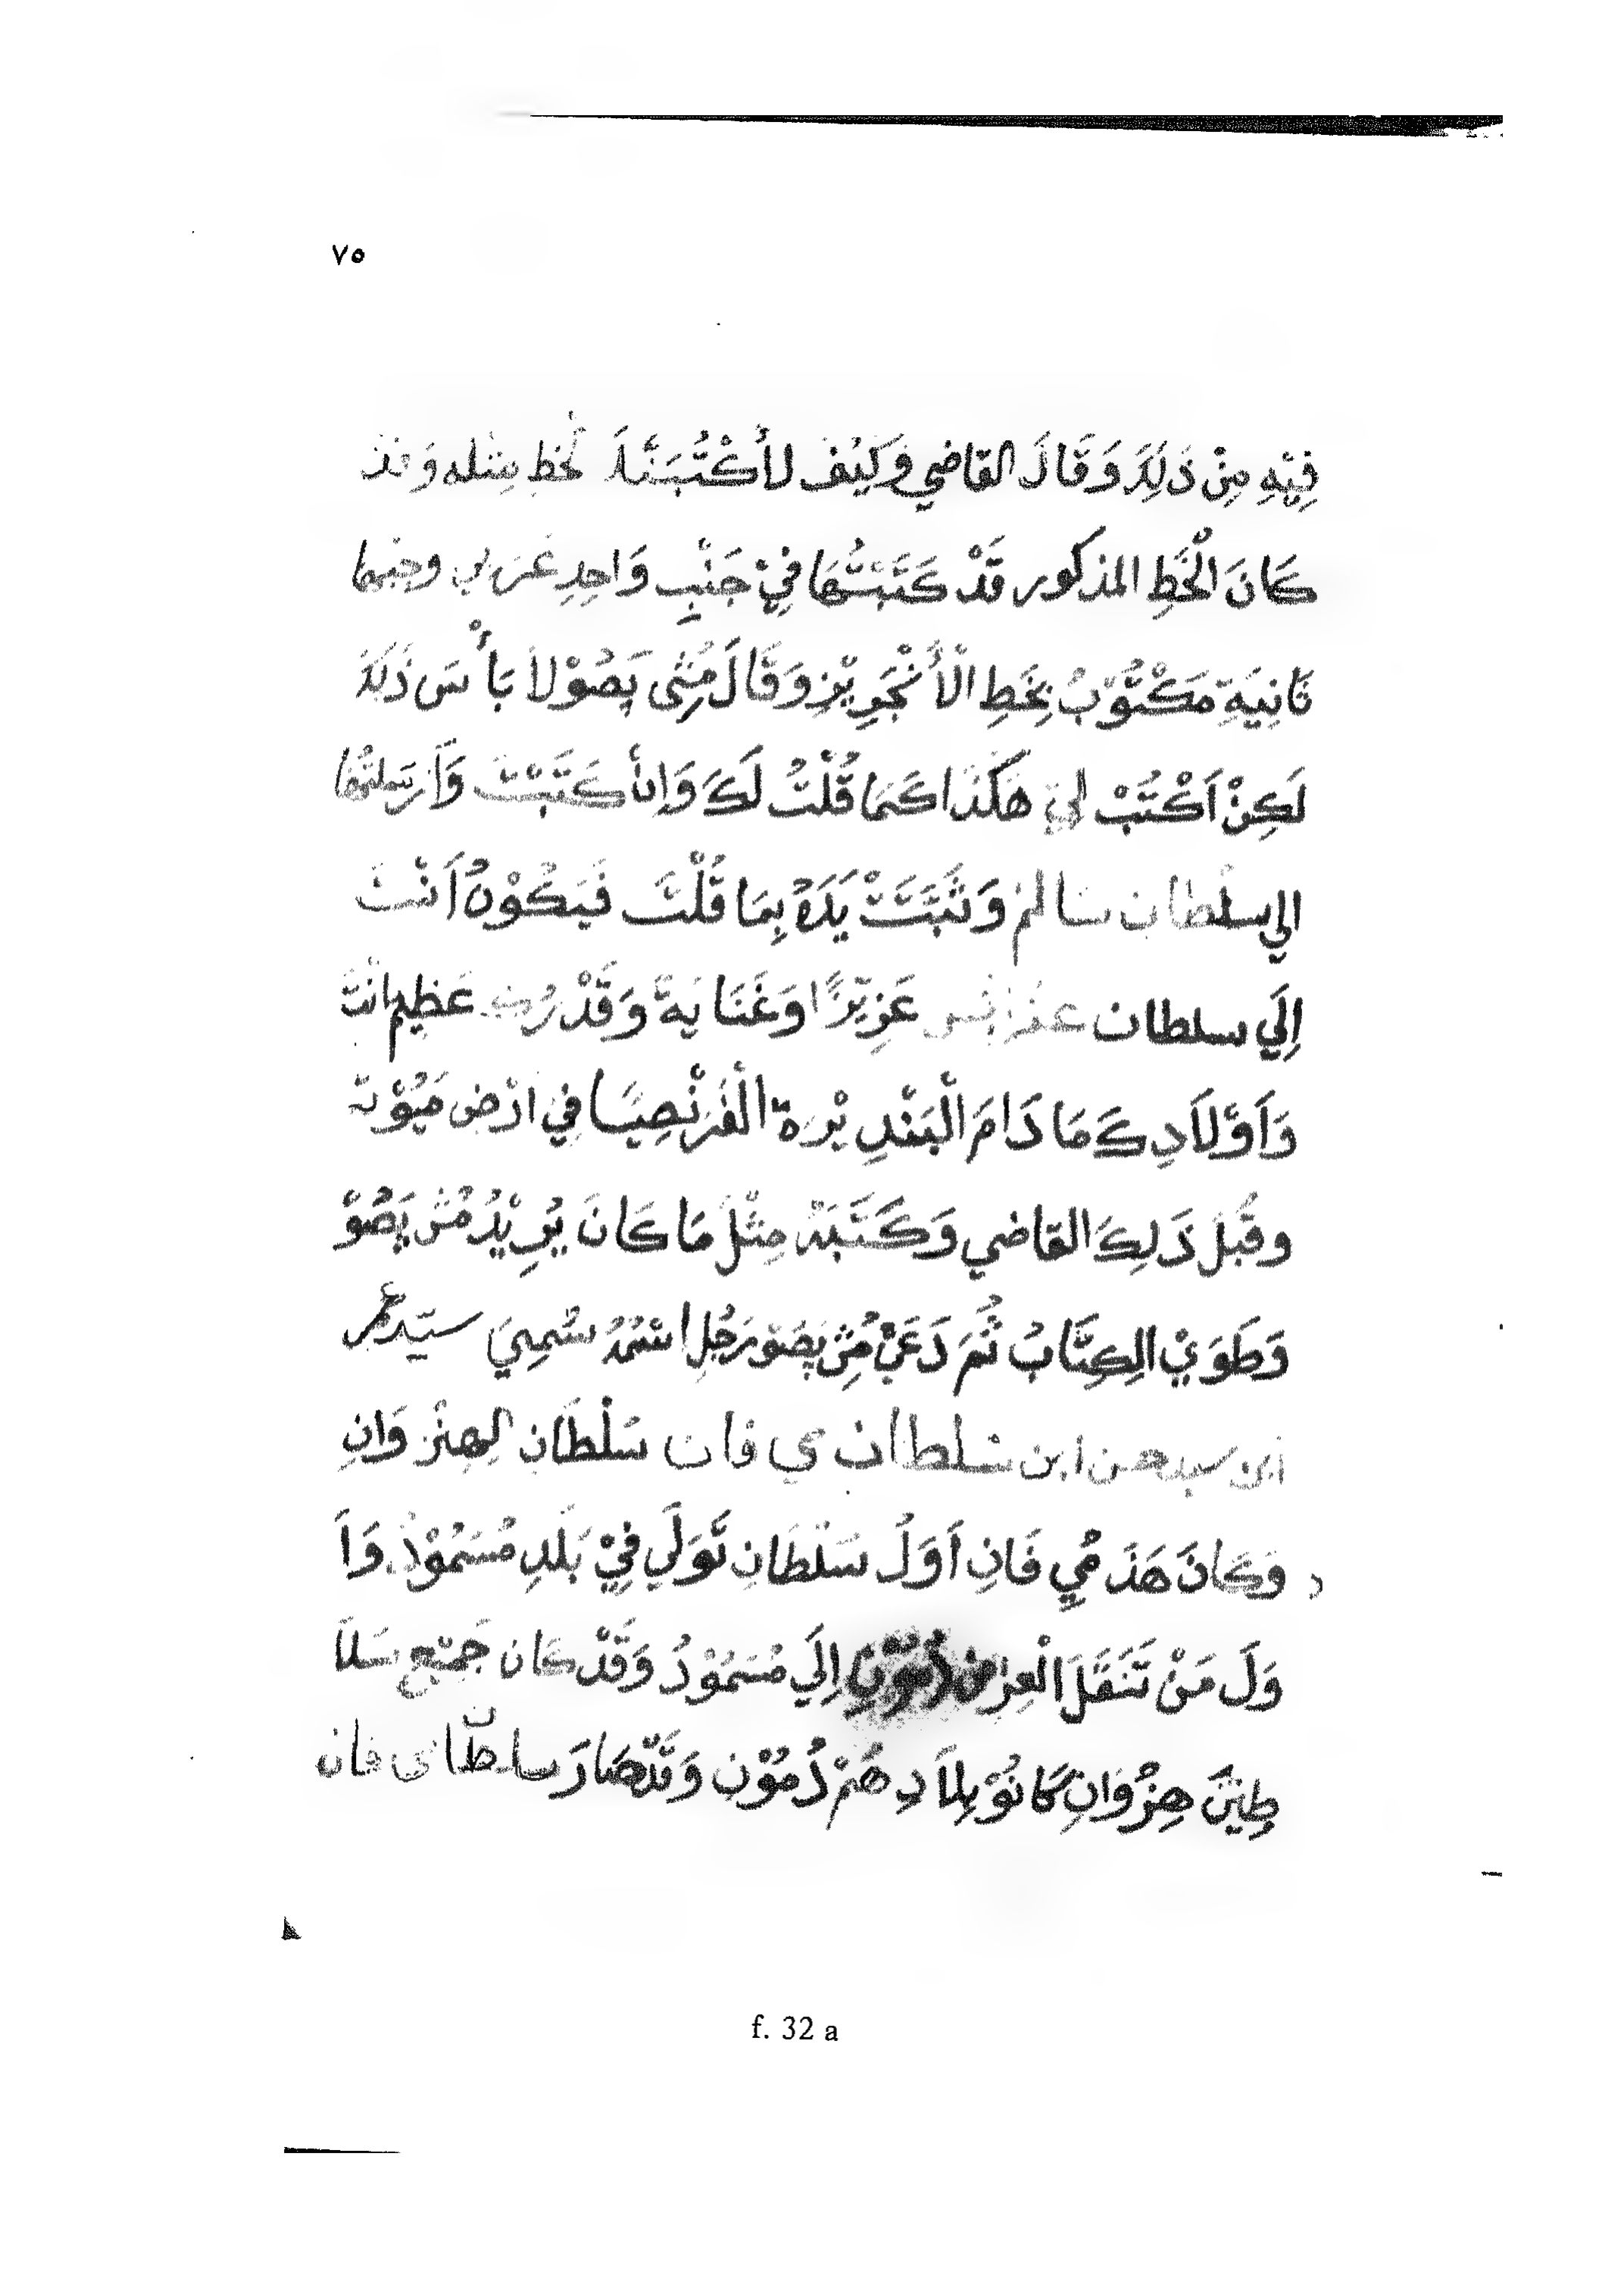 ٧٥
فِيْهِ مِنْ ذَلِكَ وَقَالَ القاضي وَكَيْفَ لأَكْتُبَنَّكَ لْخَطِ مِثله وَقد
كَانَ الْخَّطِ المذكور قَدْ كَتَبْتُهَا فِيْ جَنْبٍ وَاحِدِ عَرَبي وجنبها
ثَانِيَةِ مَكْتُوْبُ بِخَطِ الْأَنْجَرِيْزِ وَقَالَ مُثِى پَصُوْ لاَ بَأْسَ ذَلِكَ
لَكِنْ اَكْتُبْ لِيْ هَكَذَا كَمَا قُلْتُ لَكَ وَاِنْ كَتَبْتَ وَاَرْسَلتَهَا
الي سلْطان سَالمْ وَثَبَتَتْ يَدَهُ بِمَا قُلْتَ فَيَكُوْنُ اَنْتَ
اِلَي سلطان عَزِيْزًا وَغَنَايَةً وَقَدْرُكَ عَظِيم انْتَ
وَاَوْلَادِكَ مَا دَامَ الْبَنْدِيْرَةْ الْفَرَنْصِيَا فِي اَرْضِ مَيُوْتَهْ
وقَبْلَ ذَلِكَ القاضي وَكَتَبَهُ مِثْلَ مَا كَانَ يُرِيْدُ مُثِى پَصُوْ
وَطَوَيْ الكِتَابُ ثُمَ دَعَيْ مُثِى پَصَوْ رَجُلِ اسْمُهُ سُمِيَ سيّد عمر
ابن سيد حسن ابن سلطان مي فان سَلْطَانِ لهِنْزوَانِ
وَكَانَ هَذَ مْيِ فَانِ اَوَلُ سَلْطَانِ تَوَلَي فِيْ بَلَدِ مُسَمُوْدُ وَاَ
وَلَ مَنْ تَنَقَلَ الْعِرْض دُمُوْنِ اِلَي مُسَمُوْدُ وَقَدْ كَان جَمِيْع سَلاَ
طِيْنَ هِنْزْوَانِ كَانُوْ بِلَادِهُمْ دُمُوْنِ وَقَدْ صَارَ سلطَان مي فان
f. 32 a